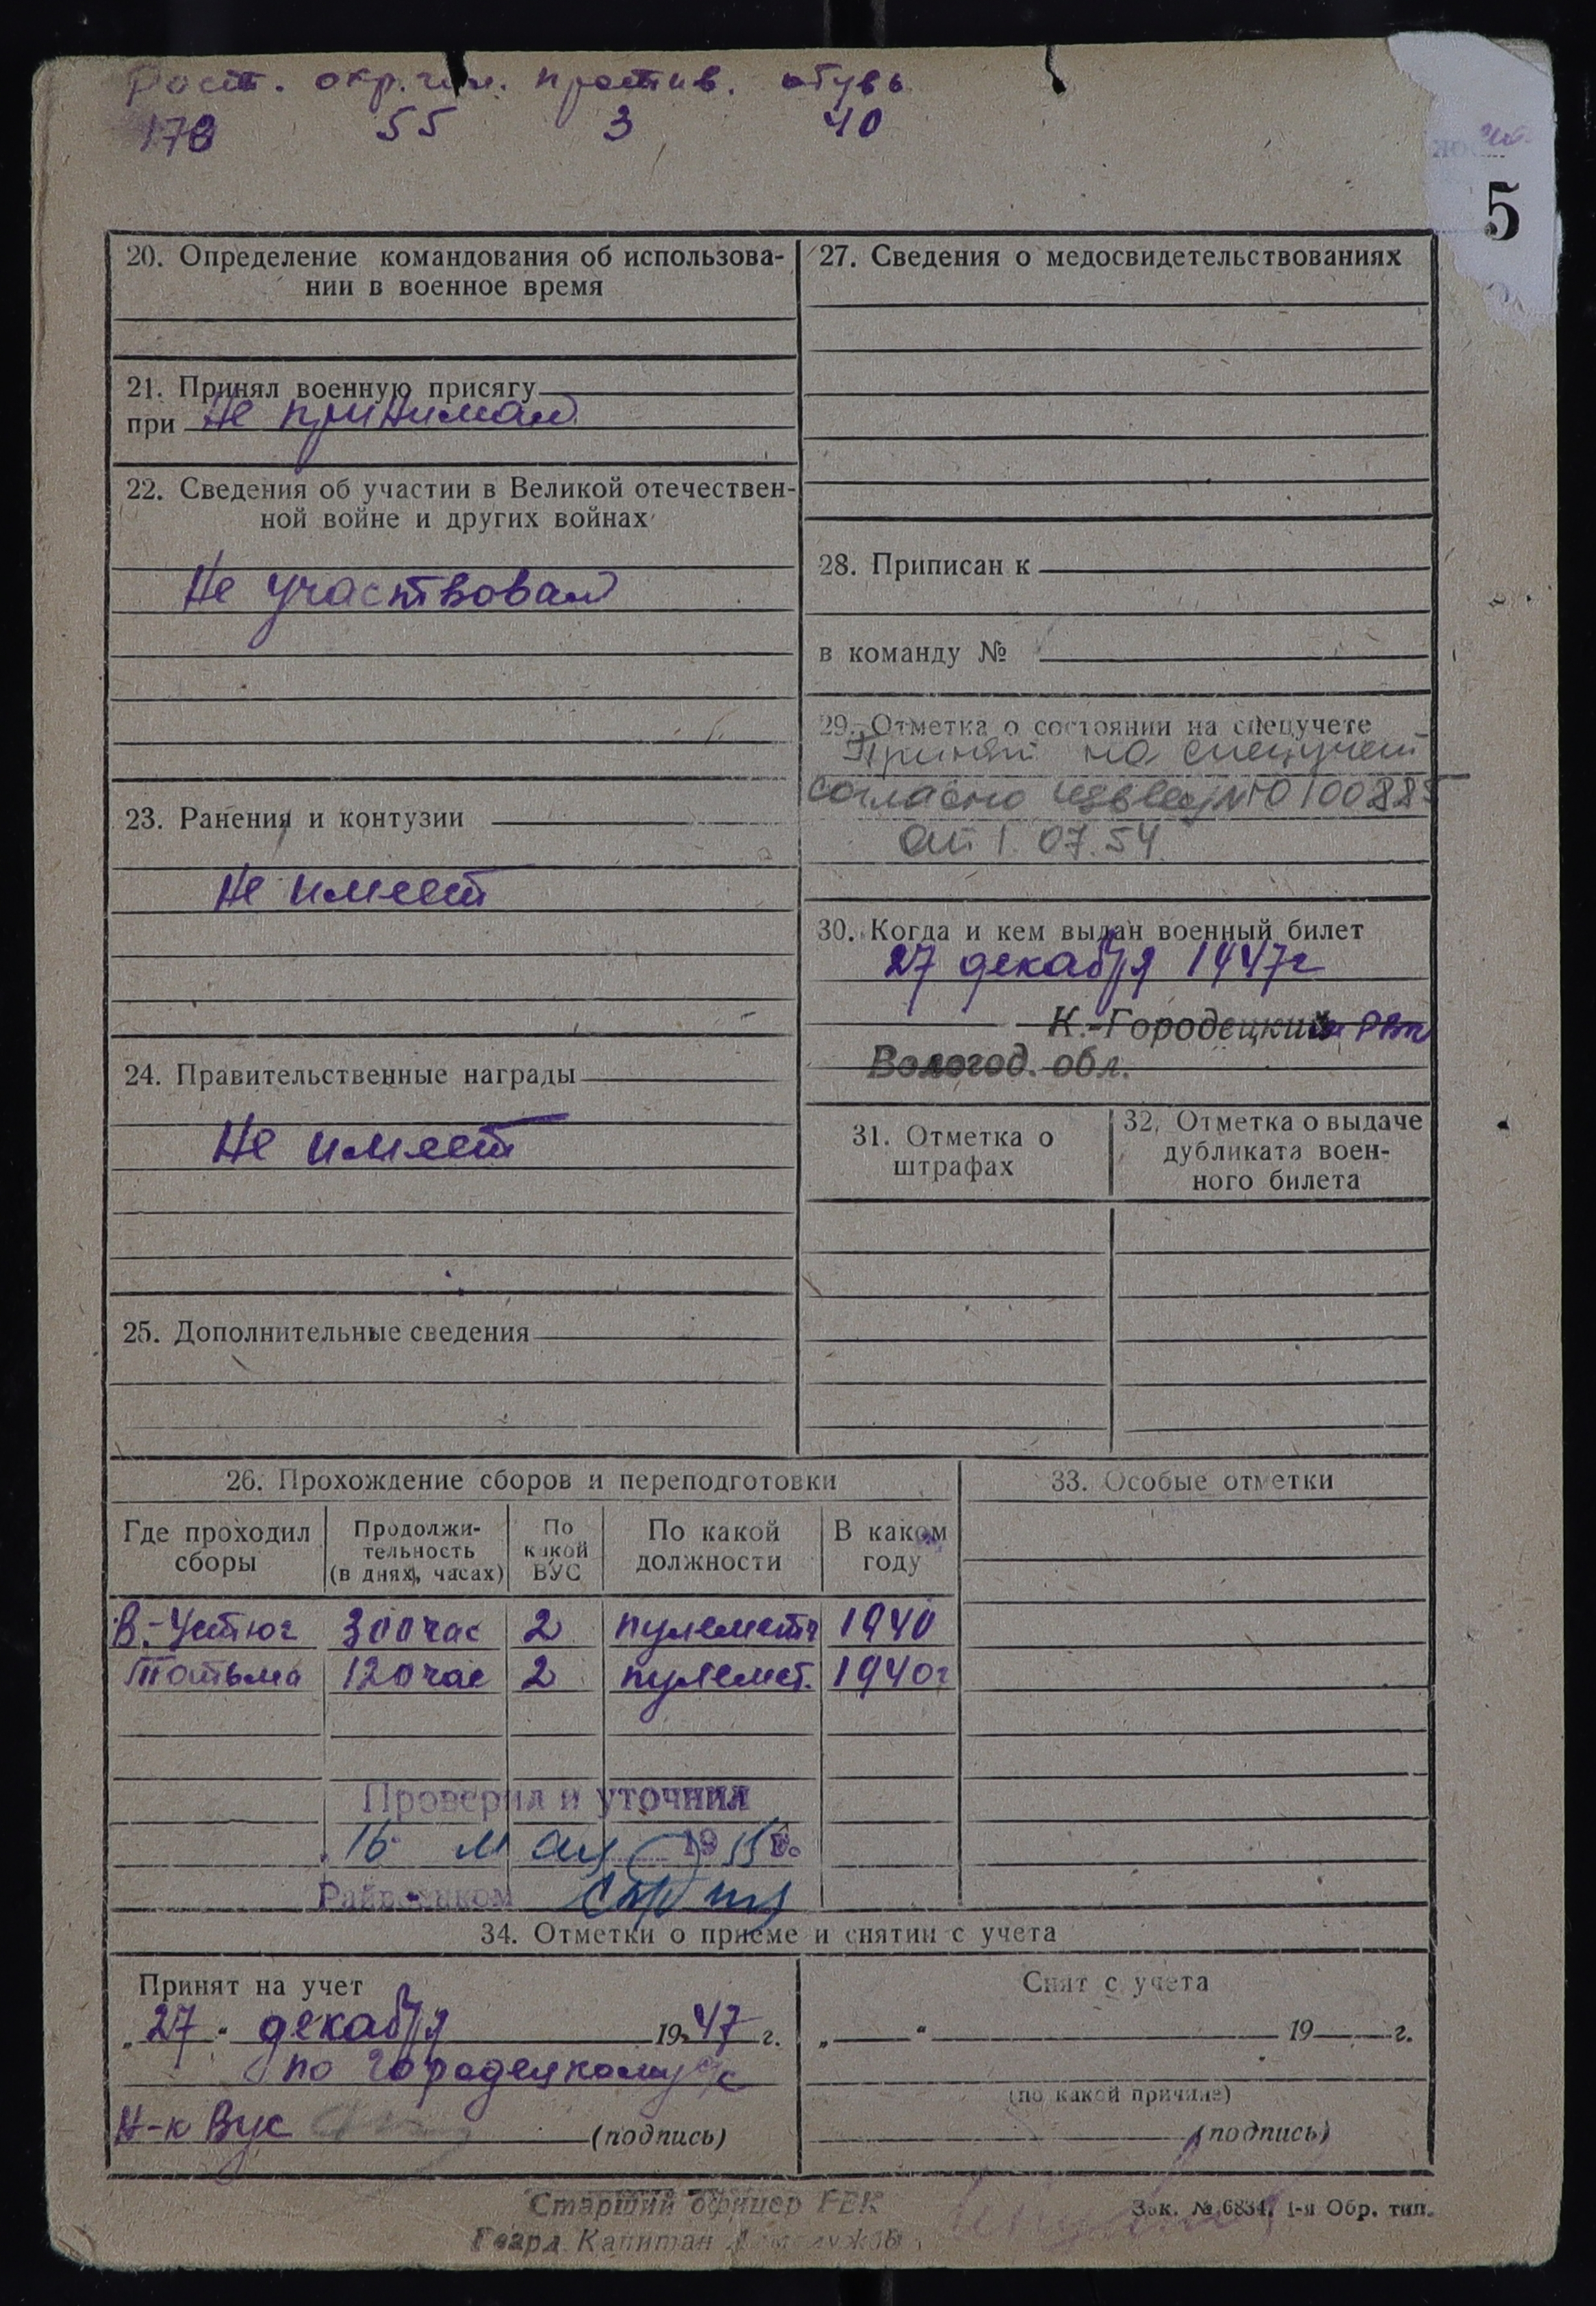 Рост. окр.гол. против. обувь
178 55 3 40
5
20. Определение командования об использова-
нии в военное время
21. Принял военную присягу
при Не принимал
22. Сведения об участии в Великой отечествен-
ной войне и других войнах
Не участвовал
23. Ранения и контузии
Не имеет
24. Правительственные награды
Не имеет
25. Дополнительные сведения
27. Сведения о медосвидетельствованиях
28. Приписан к
в команду №
29. Отметка о состоянии на спецучете
Принят на спецучет
согласно извещ №0100885
от 1.07.54
30. Когда и кем выдан военный билет
27 декабря 1947г
К.-Городецким РВК
Вологод. обл.
31. Отметка о
штрафах
32. Отметка о выдаче
дубликата воен-
ного билета
26. Прохождение сборов и переподготовки
Где проходил
сборы
Продолжи-
тельность
(в днях, часах)
По
какой
ВУС
По какой
должности
В каком
году
В.-Устюг 300час 2 пулеметч 1940
Тотьма 120час 2 пулемет. 1940г
Проверил и уточнил
16 мая 1955г.
Райвоенком
33. Особые отметки
34. Отметки о приеме и снятии с учета
Принят на учет
„27“ декабря 1947 г.
по Городецкому
Н-к Вус (подпись)
Снят с учета
„ “ 19 г.
(по какой причине)
(подпись)
Старший офицер
Гвард. Капитан
Зак. № 6834. 1-я Обр. тип.